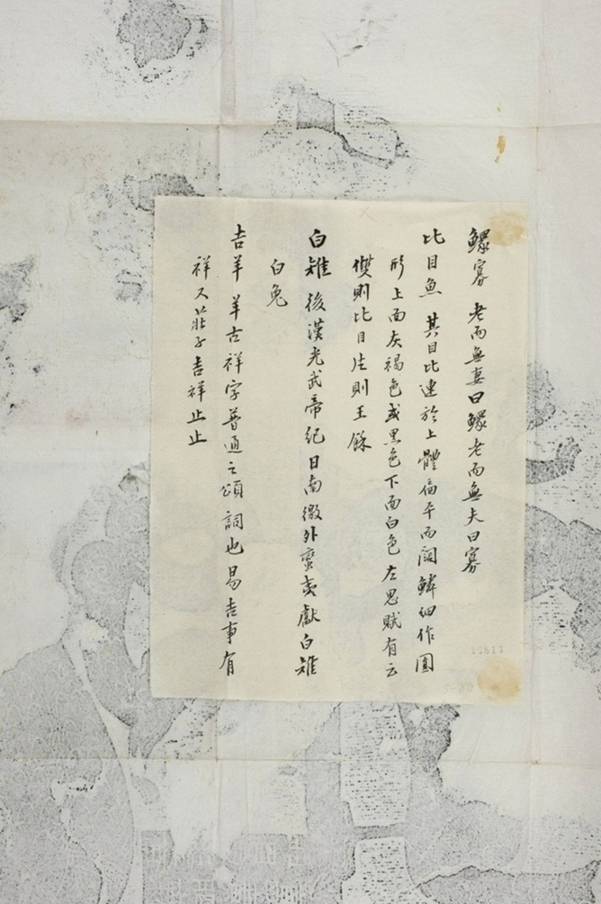 鰥寡 老而無妻曰鰥老而無夫曰寡
比目魚 其目比連於上體扁平而闊鱗細作圓
形上面灰褐色或黑色下面白色左思賦有云
雙則比目片則王餘
白雉 後漢光武帝紀日南徼外蠻夷獻白雉
白兔
吉羊 羊古祥字普通之頌詞也易吉事有
祥又莊子吉祥止止